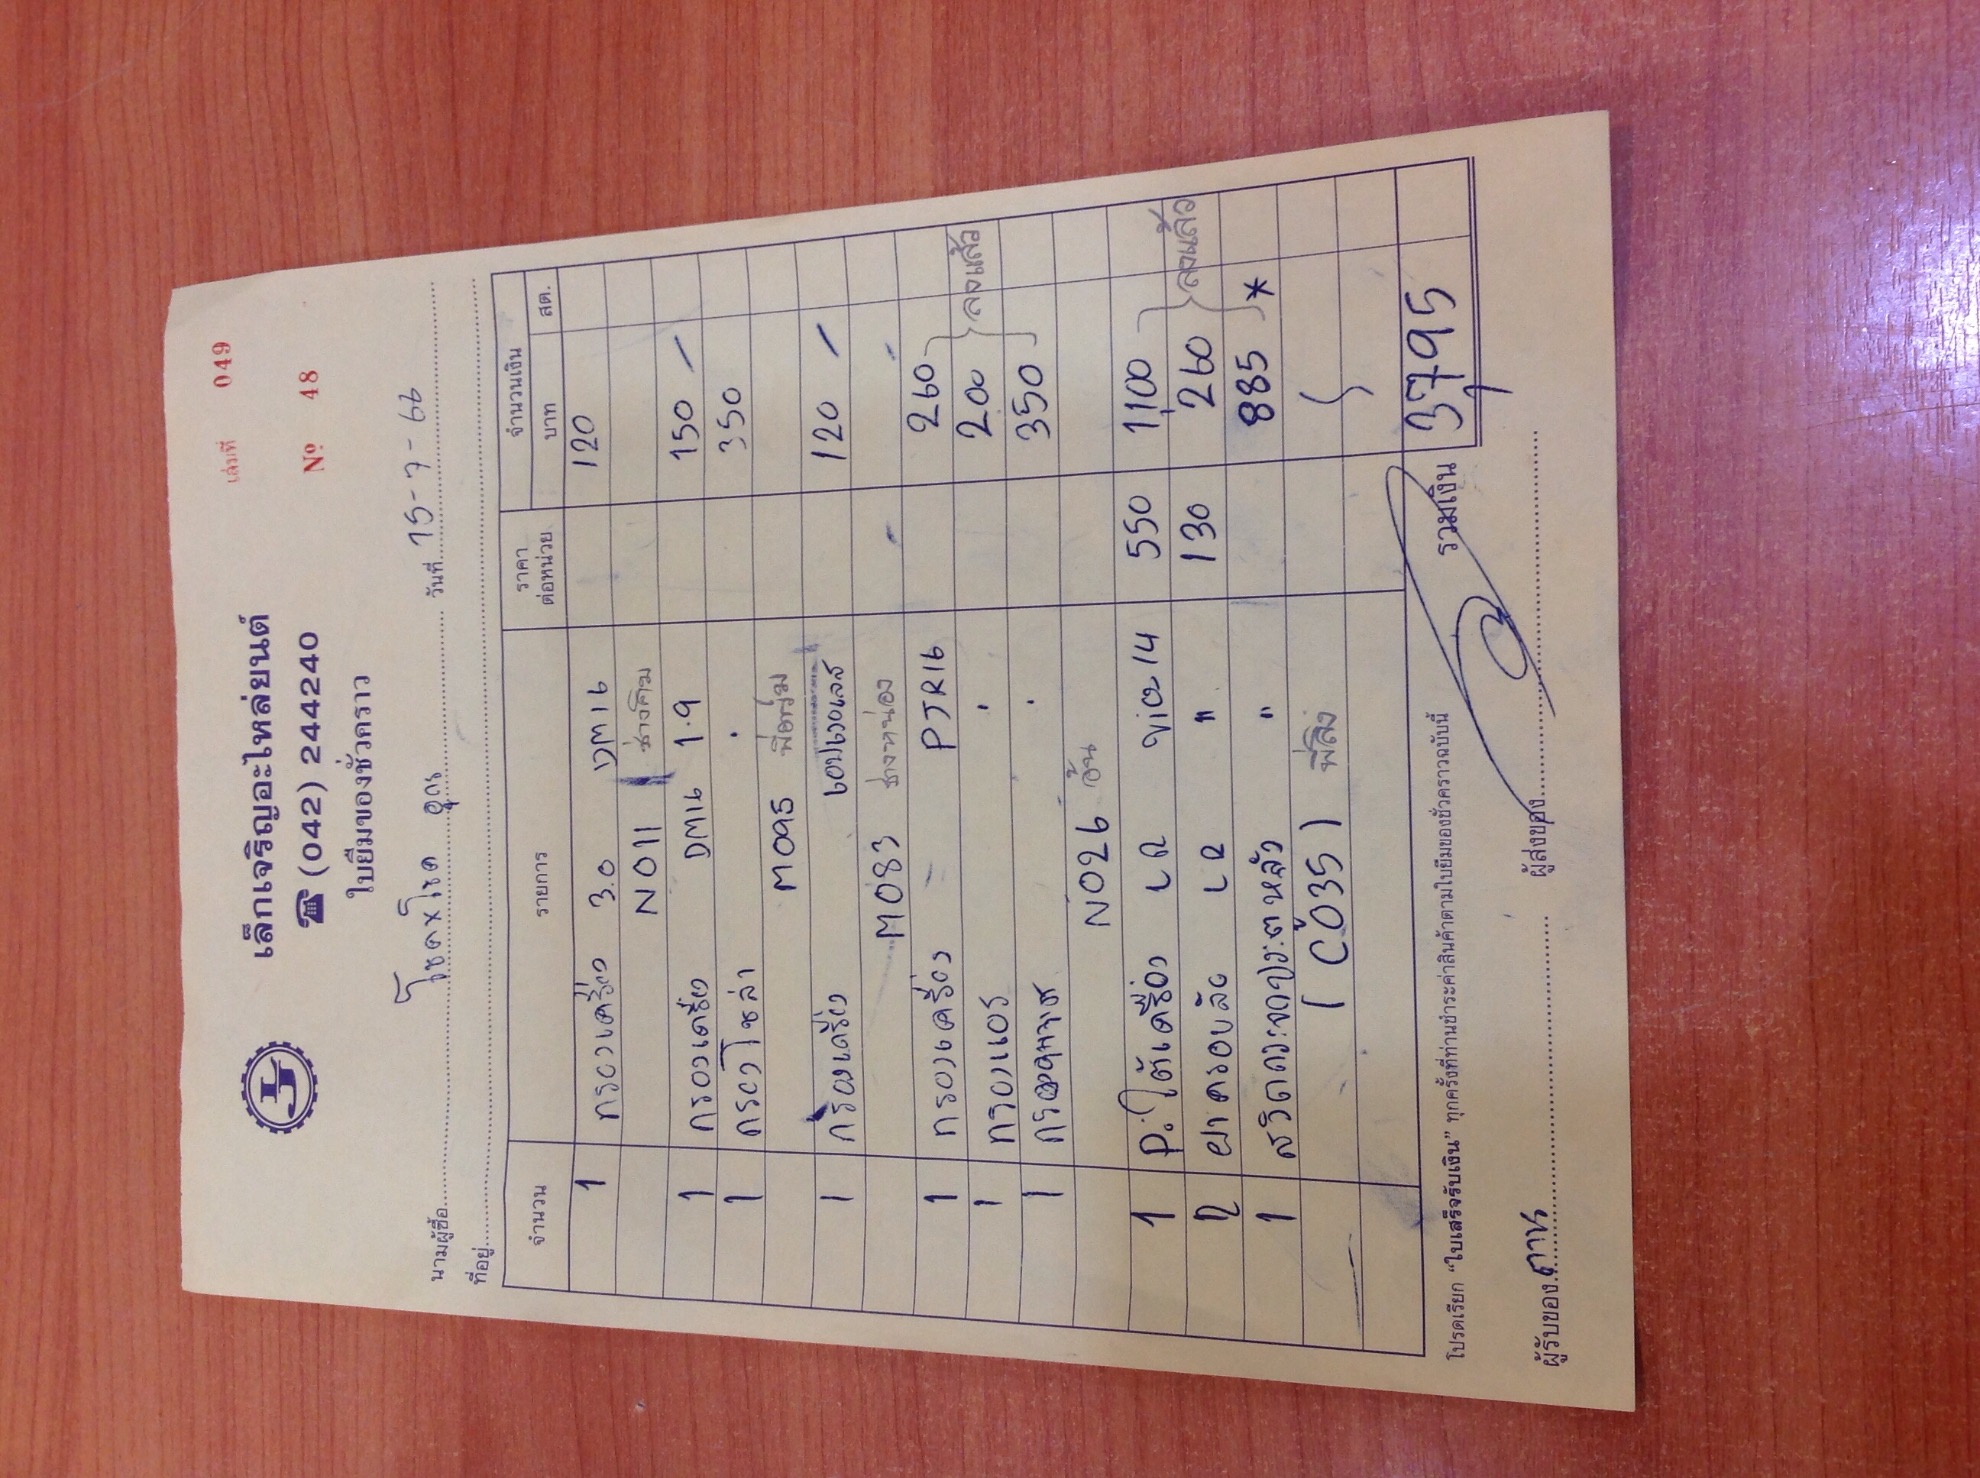 เล่มที่ 049
เล็กเจริญอะไหล่ยนต์
☎ (042) 244240
Nº 48
ใบยืมของชั่วคราว
นามผู้ซื้อ โชคxโชค อุดร วันที่ 15-7-66
ที่อยู่
จำนวน รายการ ราคาต่อหน่วย จำนวนเงิน บาท สต.
1 กรองเครื่อง 3.0 DM16 120
N011 ช่างคิม
1 กรองเครื่อง DM16 1.9 150
1 กรองโซล่า " 350
M095
1 กรองเครื่อง 120
M083 ช่างหน่อง
1 กรองเครื่อง PJR16 260
1 กรองแอร์ " 200 ลงแล้ว
1 350
N026 อ้น
1 P.ใต้เครื่อง LR vios 14 550 1100
2 ยาครอบล้อ LR " 130 260 ลงแล้ว
1 " 885 *
( C035 )
รวมเงิน 3795
โปรดเรียก "ใบเสร็จรับเงิน" ทุกครั้งที่ท่านชำระค่าสินค้าตามใบยืมของชั่วคราวฉบับนี้
ผู้รับของ ผู้ส่งของ